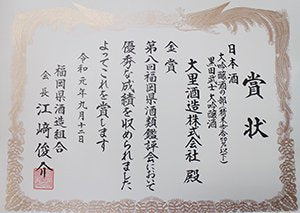 賞状
日本酒
大吟醸酒の部(精米歩合50%以下)
黒田武士大吟醸酒
大里酒造株式会社 殿
金賞
第八回福岡県酒類鑑評会において
優秀な成績を収められました
よってこれを賞します
令和元年九月十二日
福岡県酒造組合
会長 江﨑俊介